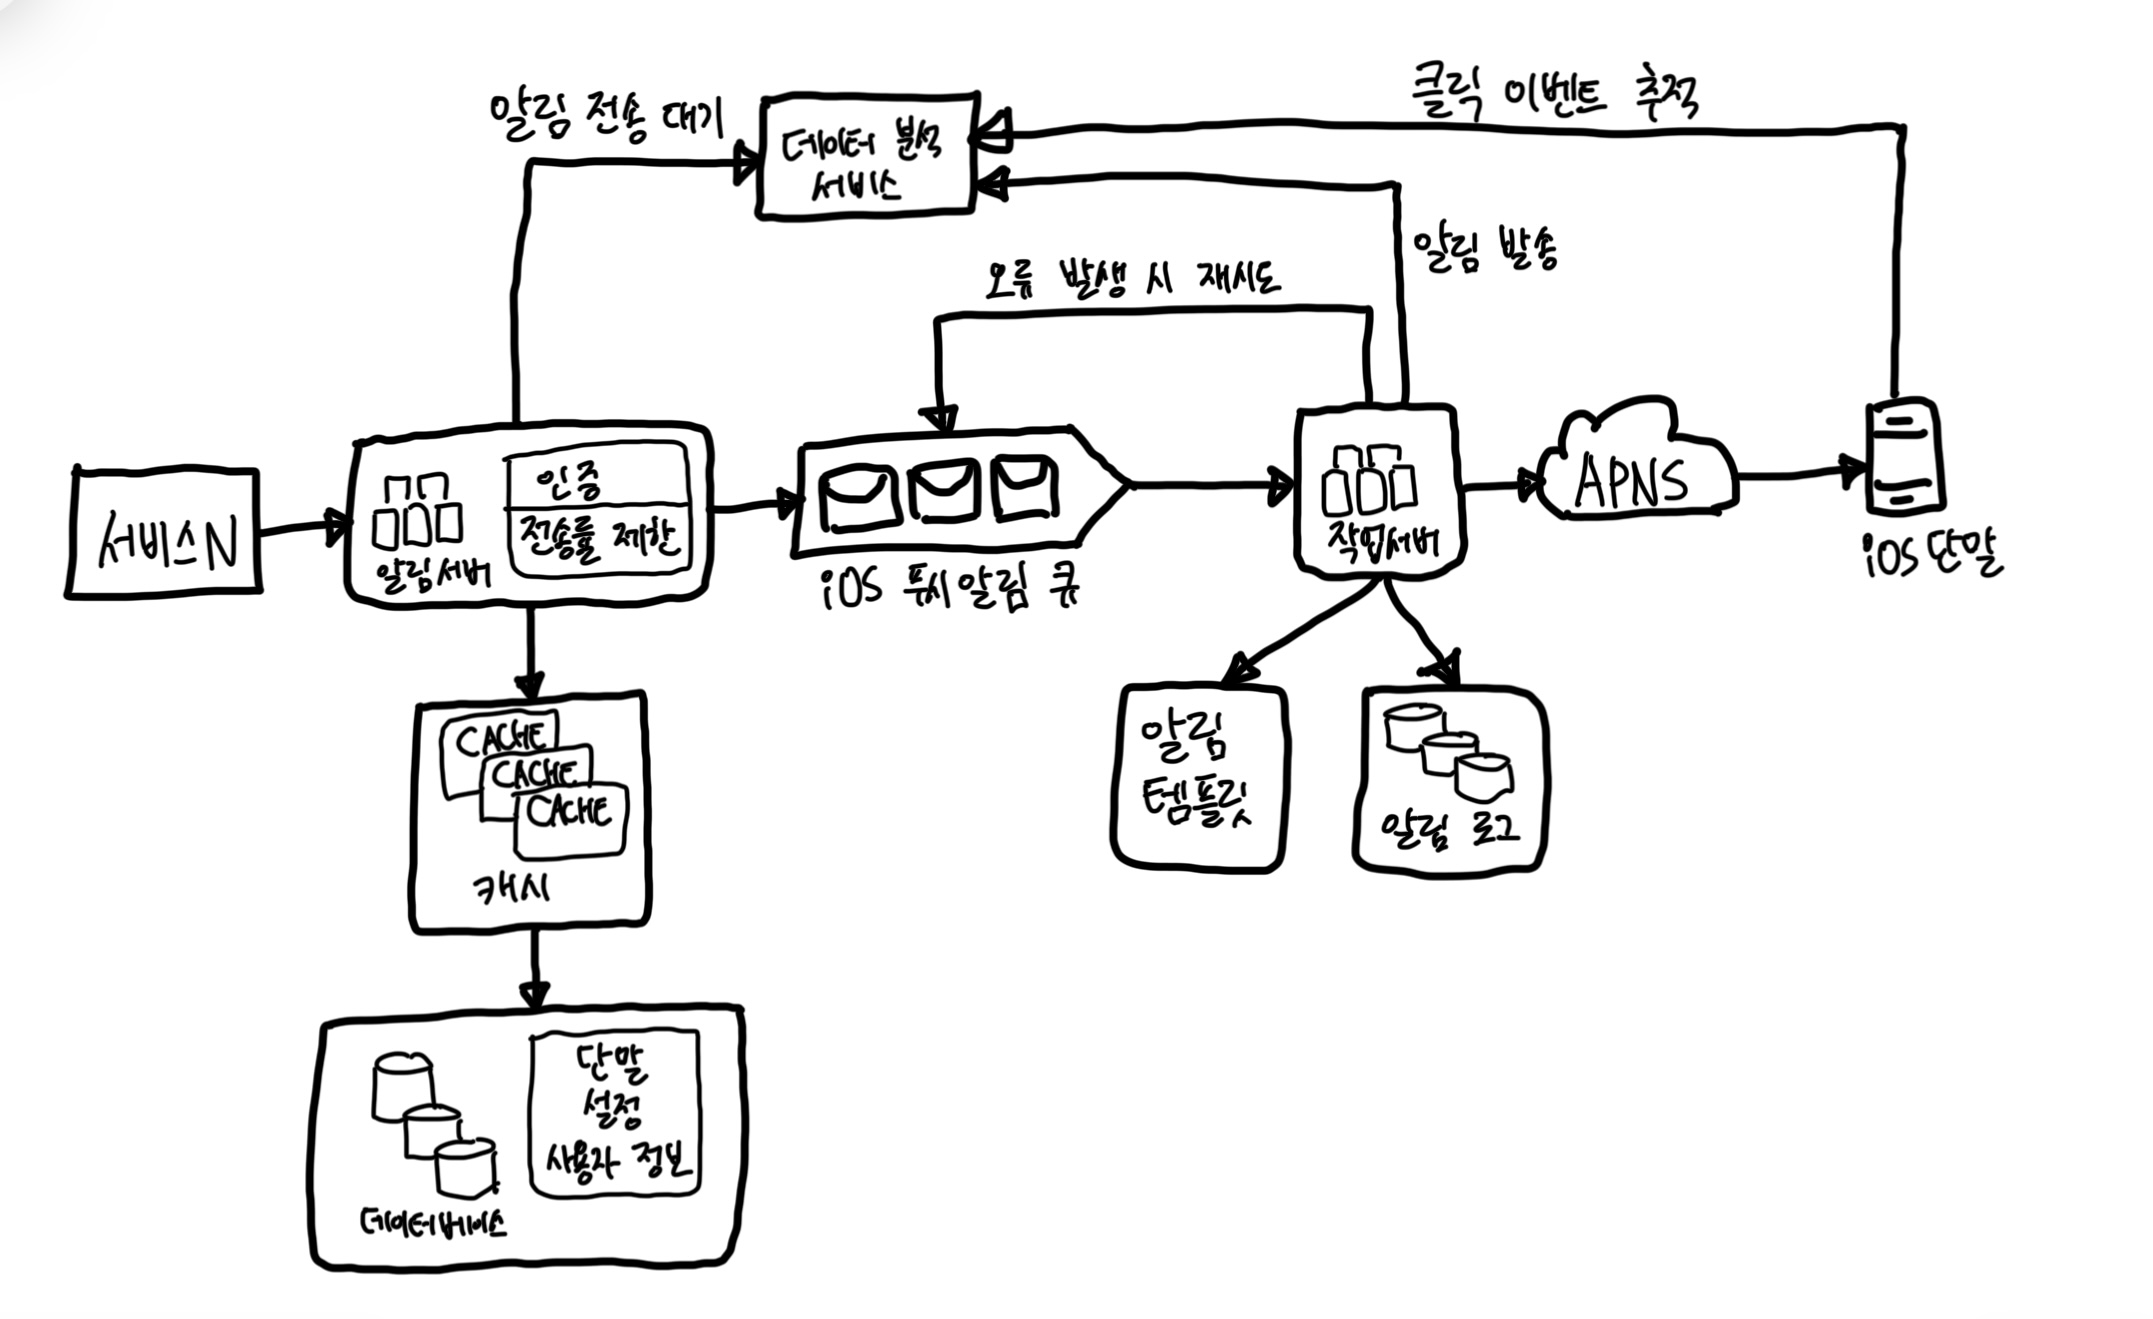 클릭 이벤트 추적
알림 전송 대기
데이터 분석
서비스
알림 발송
오류 발생 시 재시도
서비스N
알림서버
인증
전송률 제한
iOS 푸시 알림 큐
작업서버
APNS
iOS 단말
CACHE
CACHE
CACHE
캐시
알림
템플릿
알림 로그
단말
설정
사용자 정보
데이터베이스